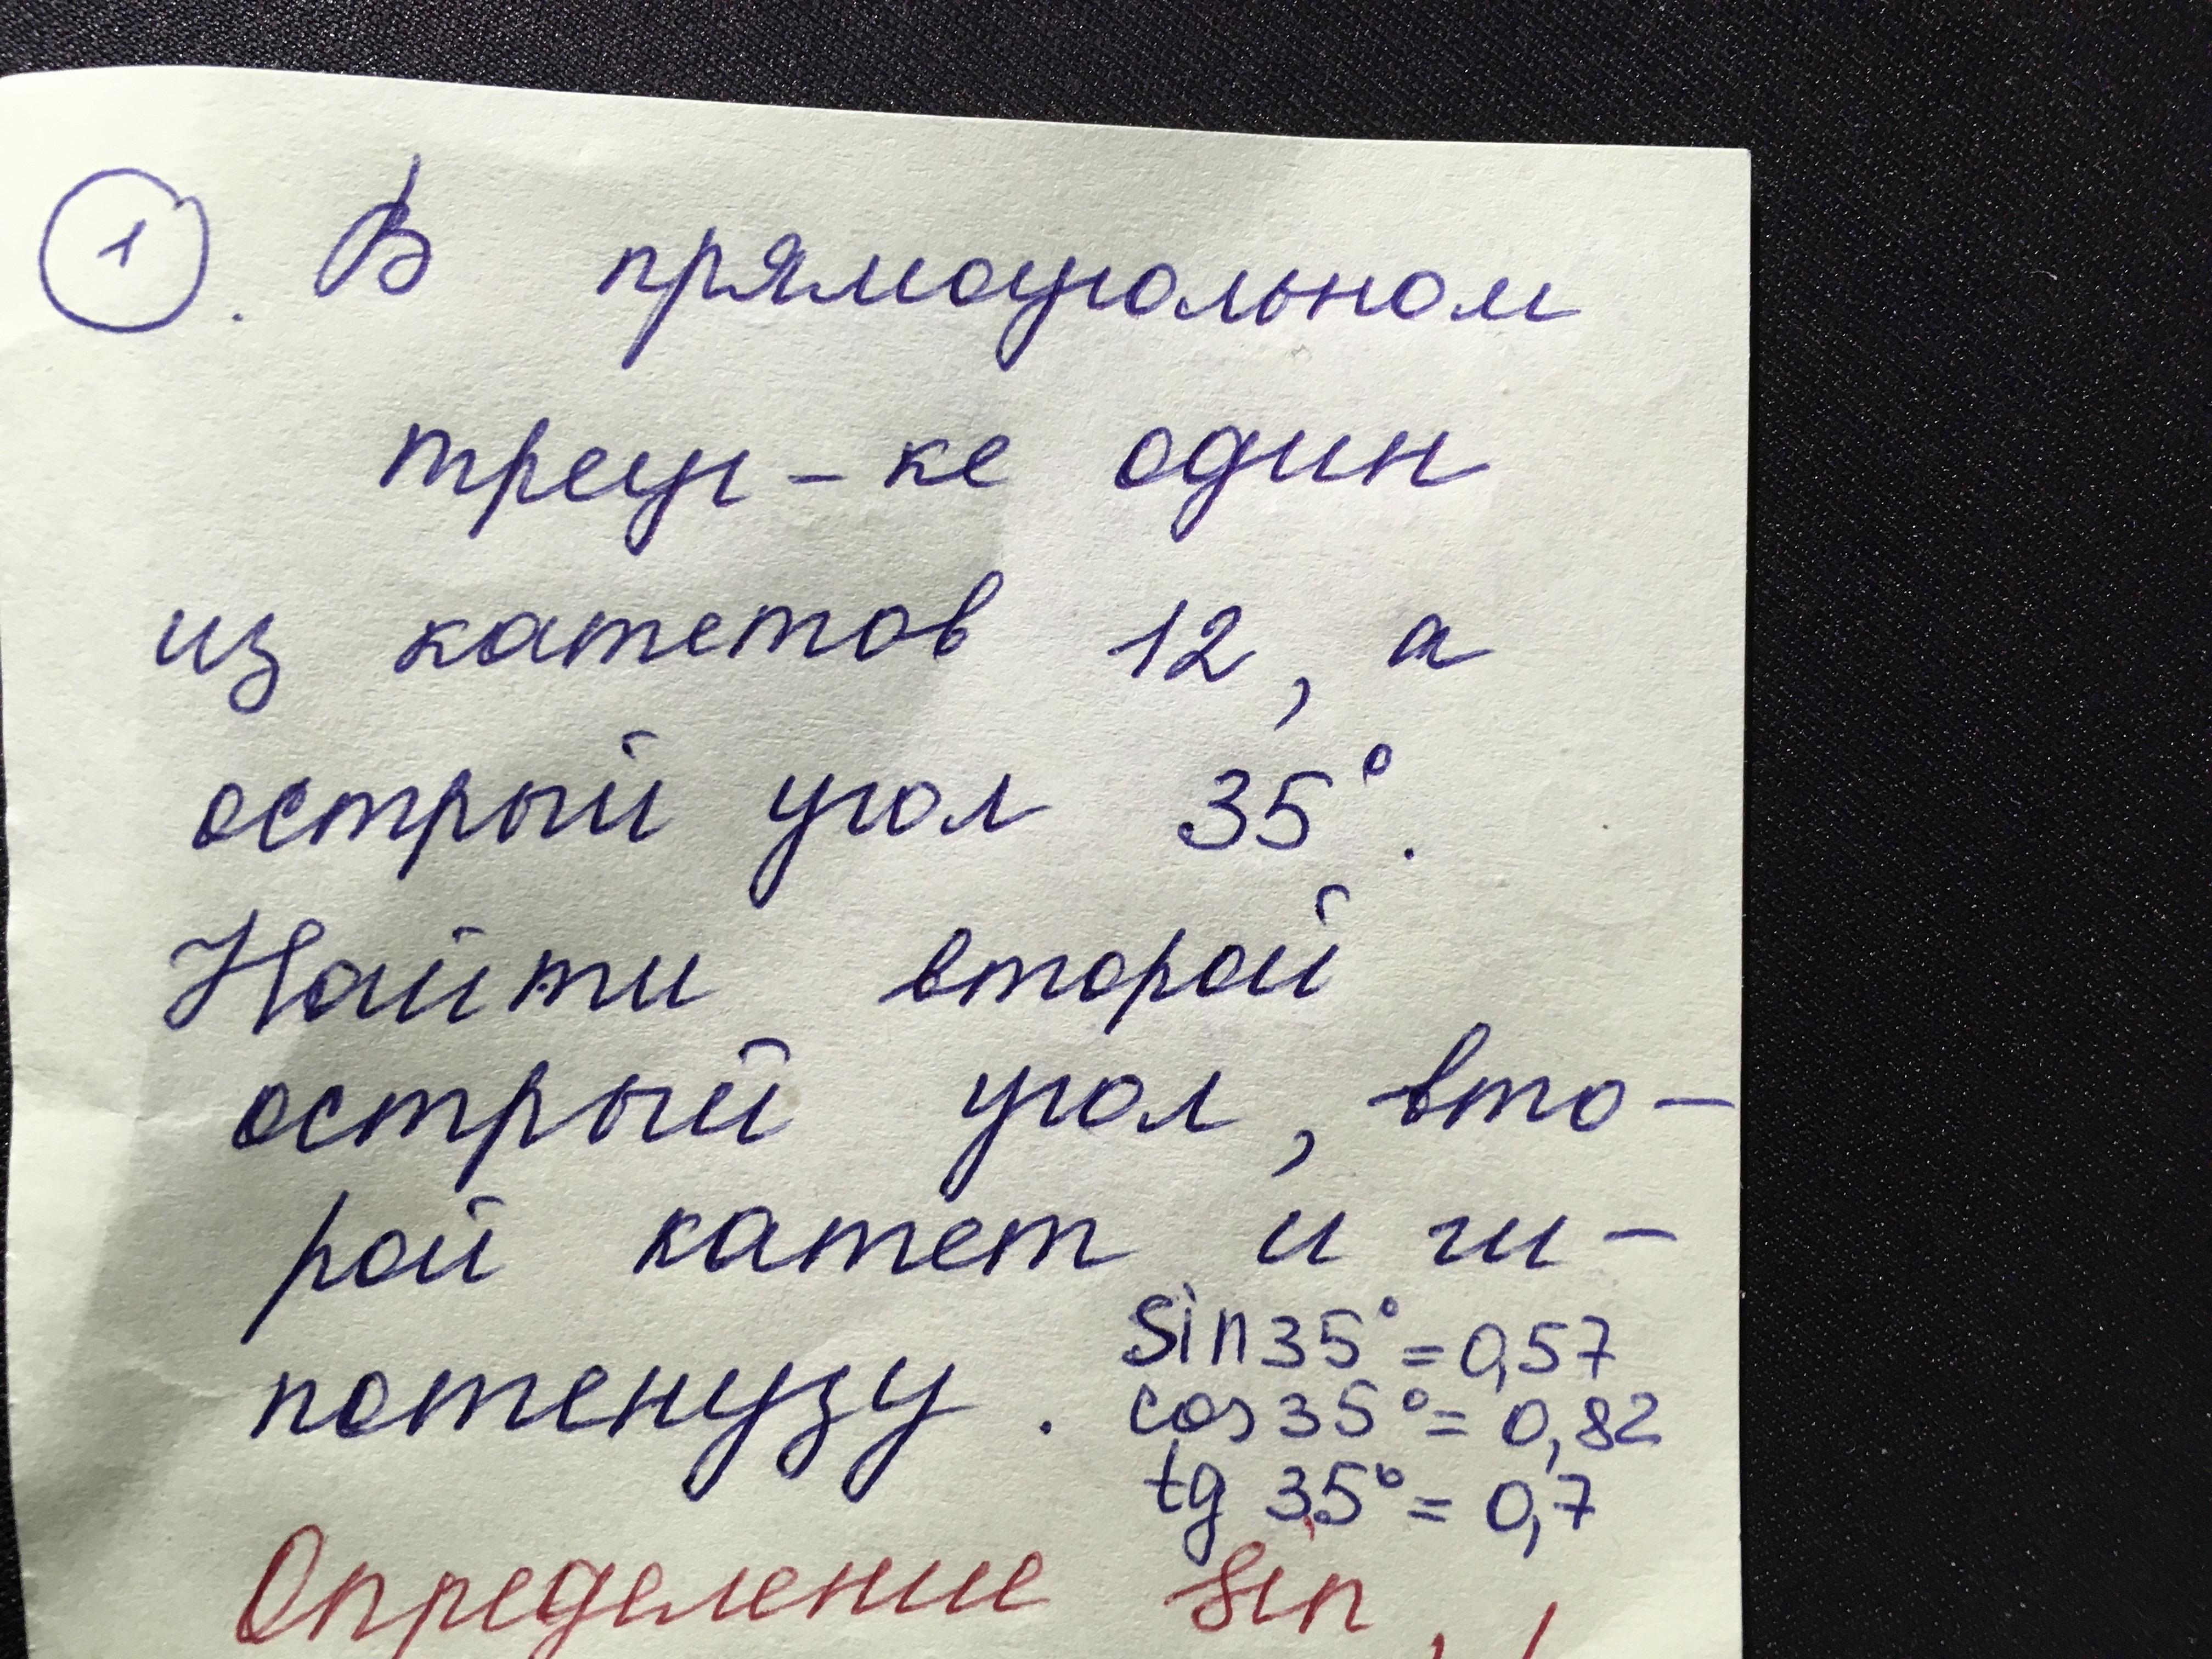 1. В прямоугольном
треуг-ке один
из катетов 12, а
острый угол 35°.
Найти второй
острый угол, вто-
рой катет и ги-
потенузу.
sin 35° = 0,57
cos 35° = 0,82
tg 35° = 0,7
Определение sin,